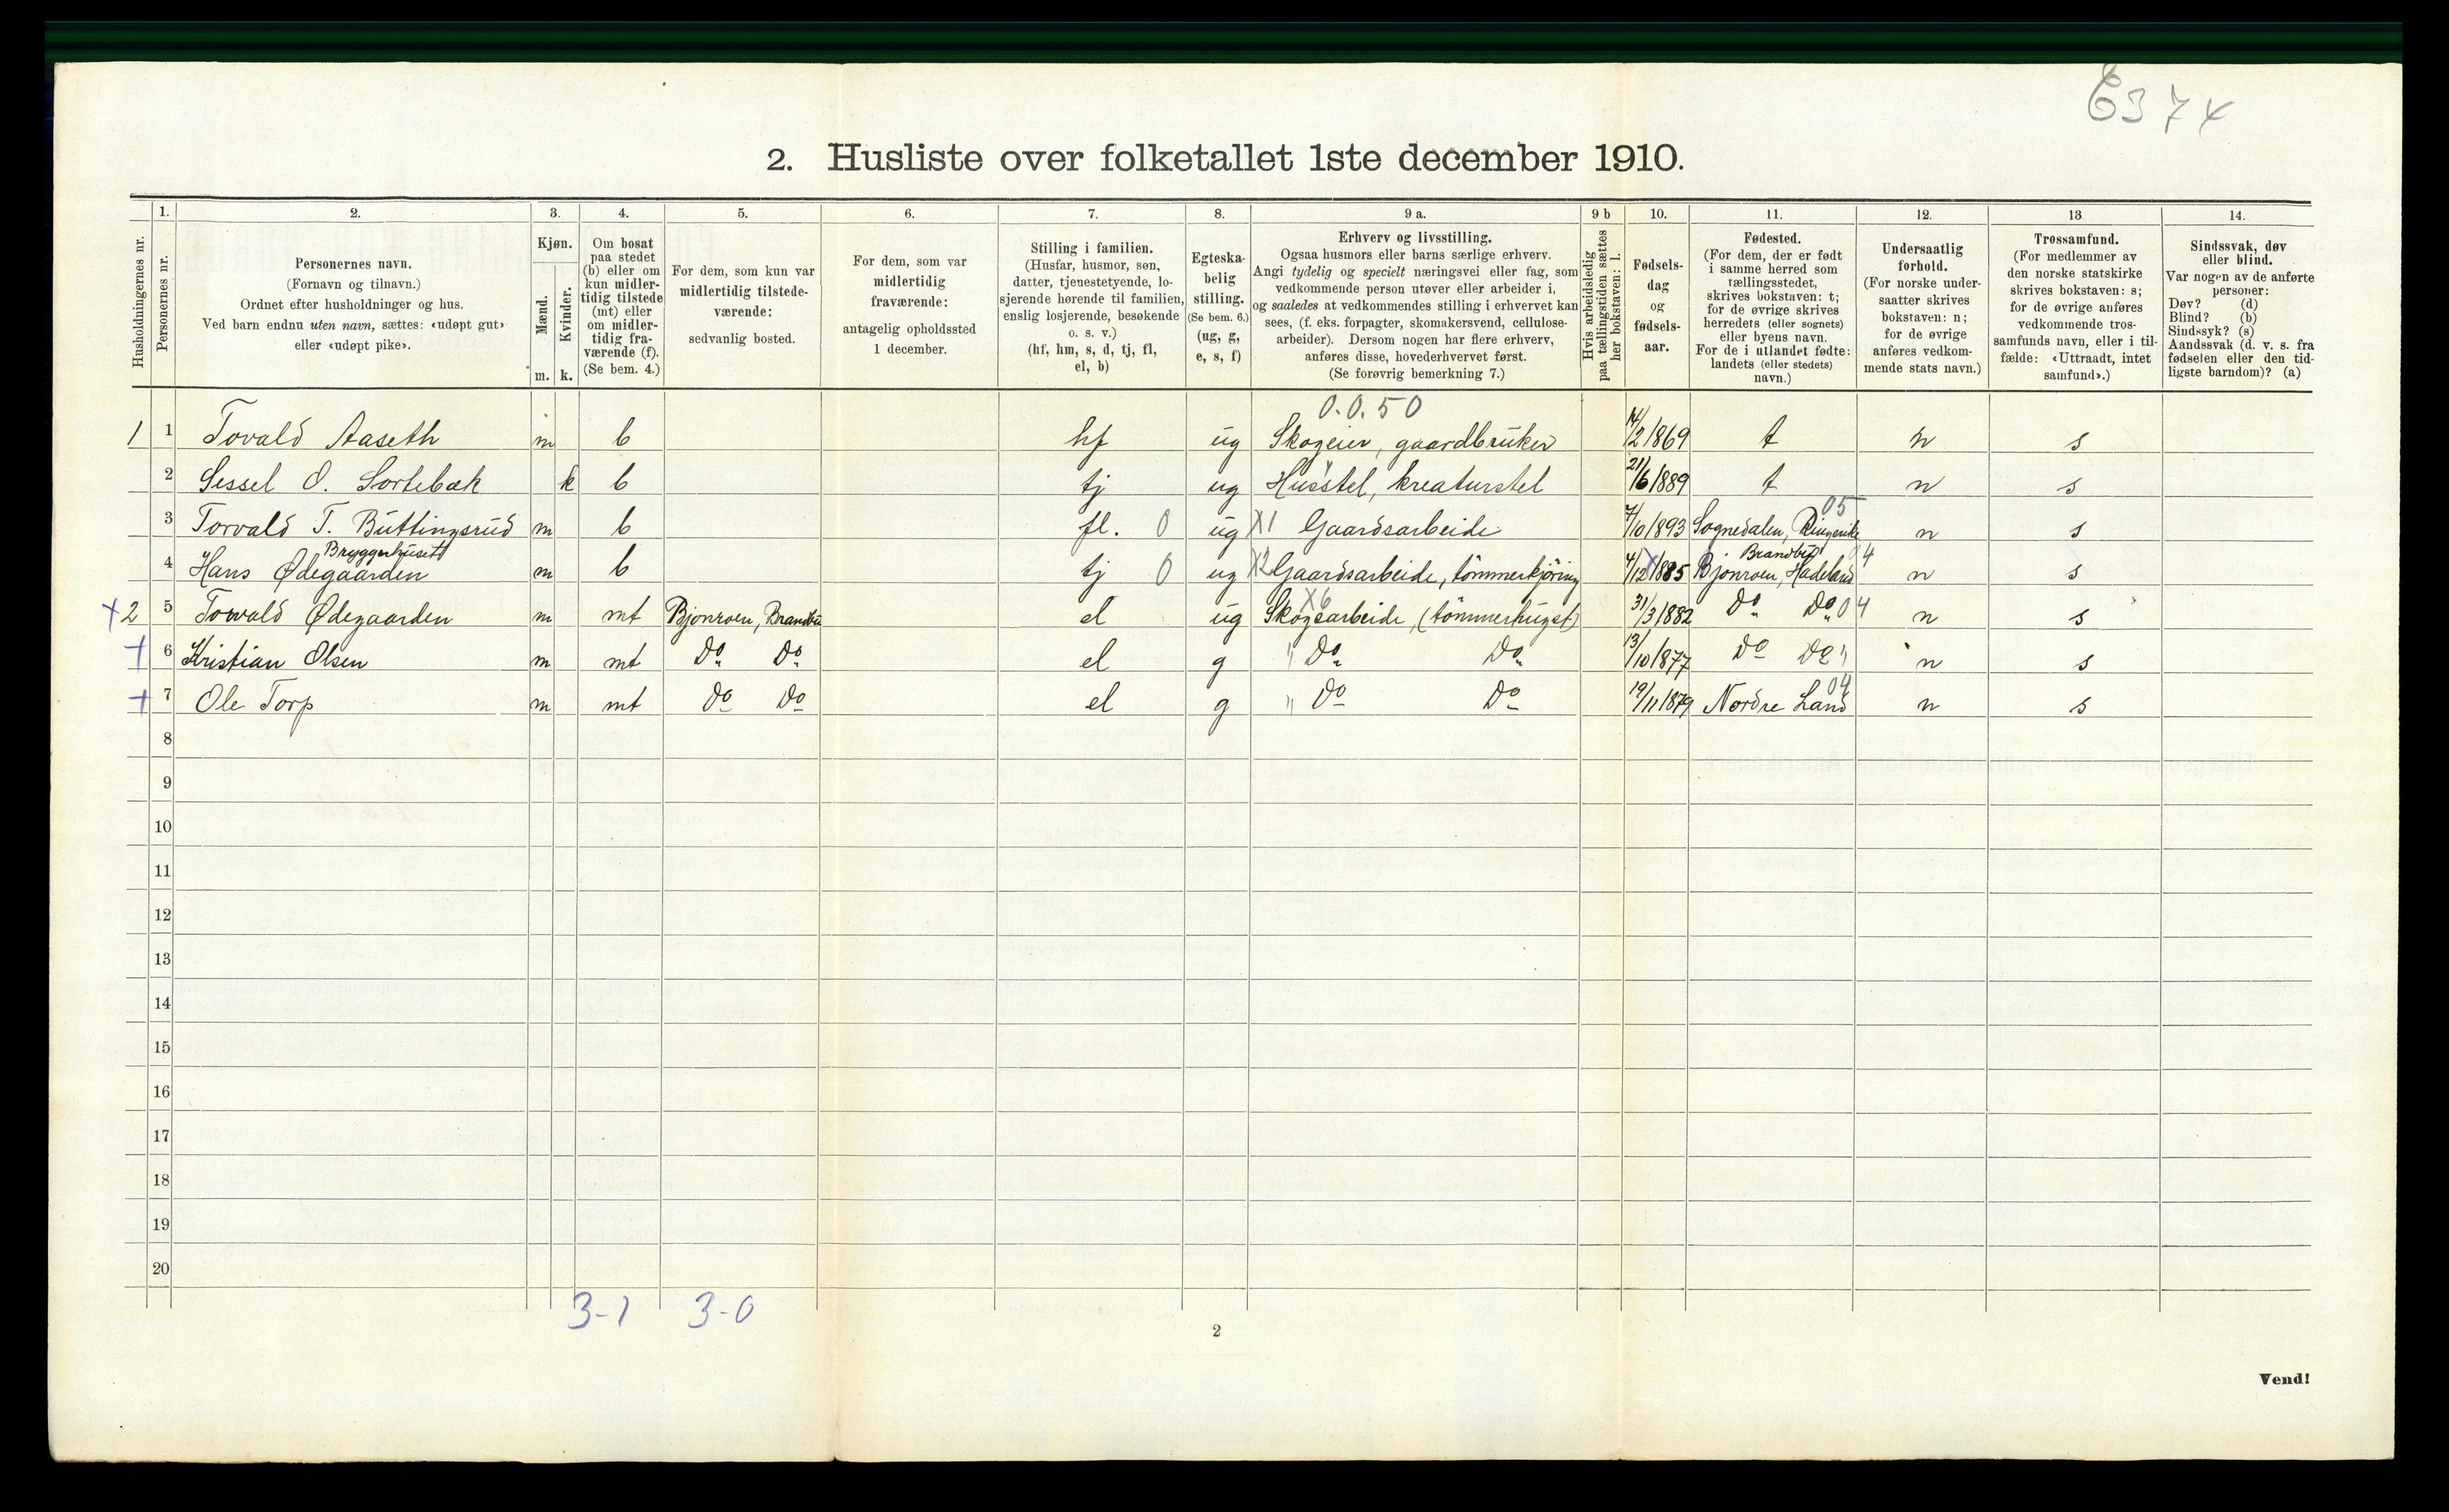 6374
2. Husliste over folketallet 1ste december 1910.
Husholdningernes nr.
1.
Personernes nr.
2.
Personernes navn.
(Fornavn og tilnavn.)
Ordnet efter husholdninger og hus.
Ved barn endnu uten navn, sættes: «udøpt gut»
eller «udøpt pike».
3.
Kjøn.
Mænd.
Kvinder.
m.
k.
4.
Om bosat
paa stedet
(b) eller om
kun midler-
tidig tilstede
(mt) eller
om midler-
tidig fra-
værende (f).
(Se bem. 4.)
5.
For dem, som kun var
midlertidig tilstede-
værende:
sedvanlig bosted.
6.
For dem, som var
midlertidig
fraværende:
antagelig opholdssted
1 december.
7.
Stilling i familien.
(Husfar, husmor, søn,
datter, tjenestetyende, lo-
sjerende hørende til familien,
enslig losjerende, besøkende
o. s. v.)
(hf, hm, s, d, tj, fl,
el, b)
8.
Egteska-
belig
stilling.
(Se bem. 6.)
(ug, g,
e, s, f)
9 a.
Erhverv og livsstilling.
Ogsaa husmors eller barns særlige erhverv.
Angi tydelig og specielt næringsvei eller fag, som
vedkommende person utøver eller arbeider i,
og saaledes at vedkommendes stilling i erhvervet kan
sees, (f. eks. forpagter, skomakersvend, cellulose-
arbeider). Dersom nogen har flere erhverv,
anføres disse, hovederhvervet først.
(Se forøvrig bemerkning 7.)
9 b
Hvis arbeidsledig
paa tællingstiden sættes
her bokstaven: l.
10.
Fødsels-
dag
og
fødsels-
aar.
11.
Fødested.
(For dem, der er født
i samme herred som
tællingsstedet,
skrives bokstaven: t;
for de øvrige skrives
herredets (eller sognets)
eller byens navn.
For de i utlandet fødte:
landets (eller stedets)
navn.)
12.
Undersaatlig
forhold.
(For norske under-
saatter skrives
bokstaven: n;
for de øvrige
anføres vedkom-
mende stats navn.)
13
Trossamfund.
(For medlemmer av
den norske statskirke
skrives bokstaven: s;
for de øvrige anføres
vedkommende tros-
samfunds navn, eller i til-
fælde: «Uttraadt, intet
samfund».)
14.
Sindssvak, døv
eller blind.
Var nogen av de anførte
personer:
Døv? (d)
Blind? (b)
Sindssyk? (s)
Aandssvak (d. v. s. fra
fødselen eller den tid-
ligste barndom)? (a)
0.0.50
1 1 Tovald Aaseth m b hf ug Skogeier, gaardbruker 14/2 1869 t n s
2 Sessel O. Sortebæk k b tj ug Husstel, kreaturstel 21/6 1889 t n s
05
3 Torvald T. Buttingsrud m b fl. 0 ug X1 Gaardsarbeide 7/10 1893 Sognedalen, Ringerike n s
Bryggerhuset Brandbu 04
4 Hans Ødegaarden m b tj 0 ug X2 Gaardsarbeide, tömmerkjöring 4/12 1885 Bjonroen, Hadeland n s
X6
+ 2 5 Torvald Ødegaarden m mt Bjonroen, Brandbu el ug Skogsarbeide, (tömmerhugst) 31/3 1882 Do Do 04 n s
+ 6 Kristian Olsen m mt Do Do el g " Do Do 13/10 1877 Do Do " n s
04
+ 7 Ole Torp m mt Do Do el g " Do Do 19/11 1879 Nordre Land n s
8
9
10
11
12
13
14
15
16
17
18
19
20
3-1 3-0
2
Vend!